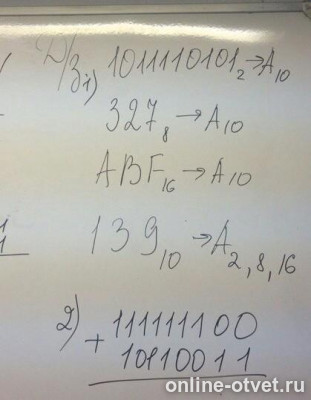 Д/З 1) 101110101₂ → A₁₀
327₈ → A₁₀
ABF₁₆ → A₁₀
139₁₀ → A₂,₈,₁₆
2) + 111111100
10110011
online-otvet.ru